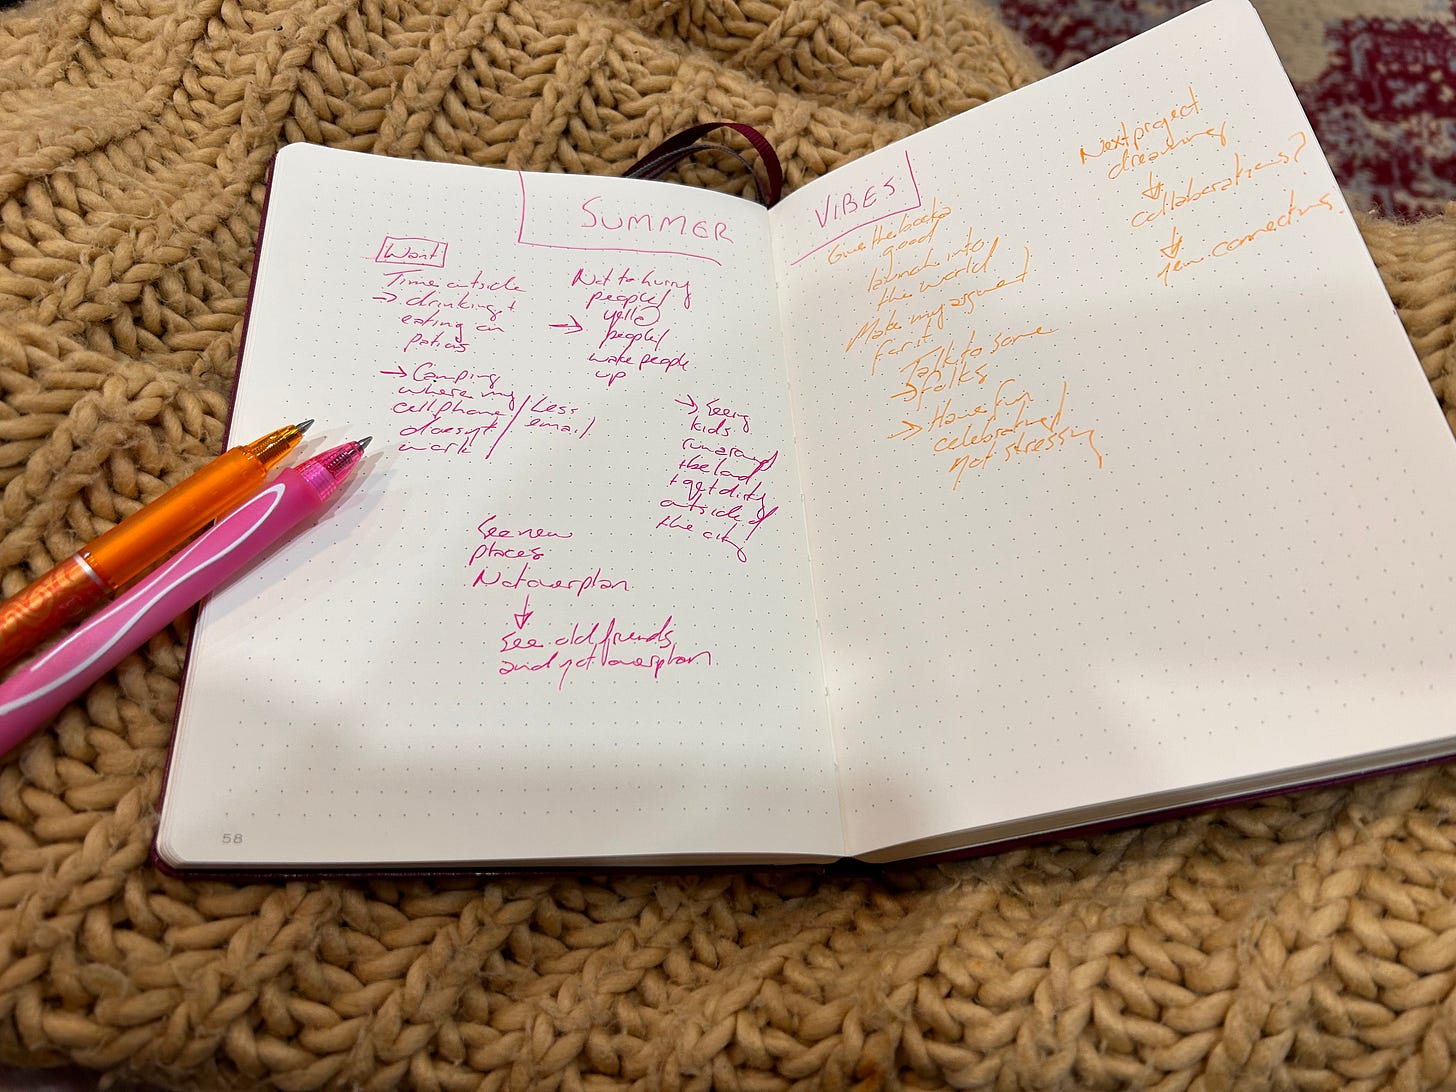 SUMMER VIBES
Want
Time outside
→ drinking +
eating on
patios
→ Camping
where my
cellphone / Less
doesn't / email
work /
Not to hurry
people/
→ people/
wake people
up
→ Seeing
kids
run around
the land
+ get dirty
outside of
the city
See new
places
Not overplan
↓
See old friends
and not overplan.
Give the book a
good
launch into
the world
Make my argument
for it.
Talk to some
→ folks
→ Have fun
celebrating
not stressing
Next project
dreaming
↓
collaborations?
↓
new connections.
58